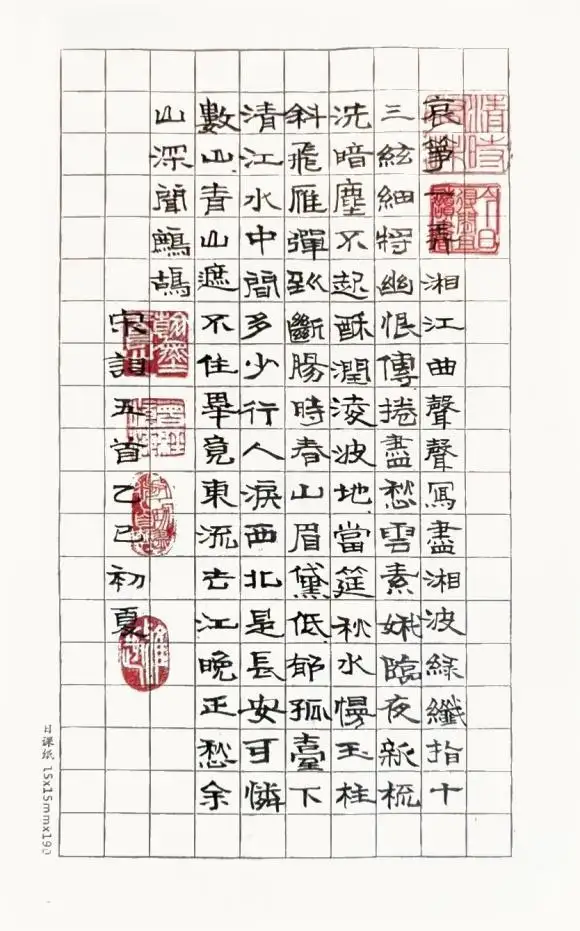 哀箏一弄湘江曲聲聲寫盡湘波綠纖指十
三絃細將幽恨傳捲盡愁雲素娥臨夜新梳
洗暗塵不起酥潤淩波地當筵秋水慢玉柱
斜飛雁彈到斷腸時春山眉黛低郁孤臺下
清江水中間多少行人淚西北是長安可憐
數山青山遮不住畢竟東流去江晚正愁余
山深聞鷓鴣
宋詞五首乙巳初夏
日課紙 15x15mmx190